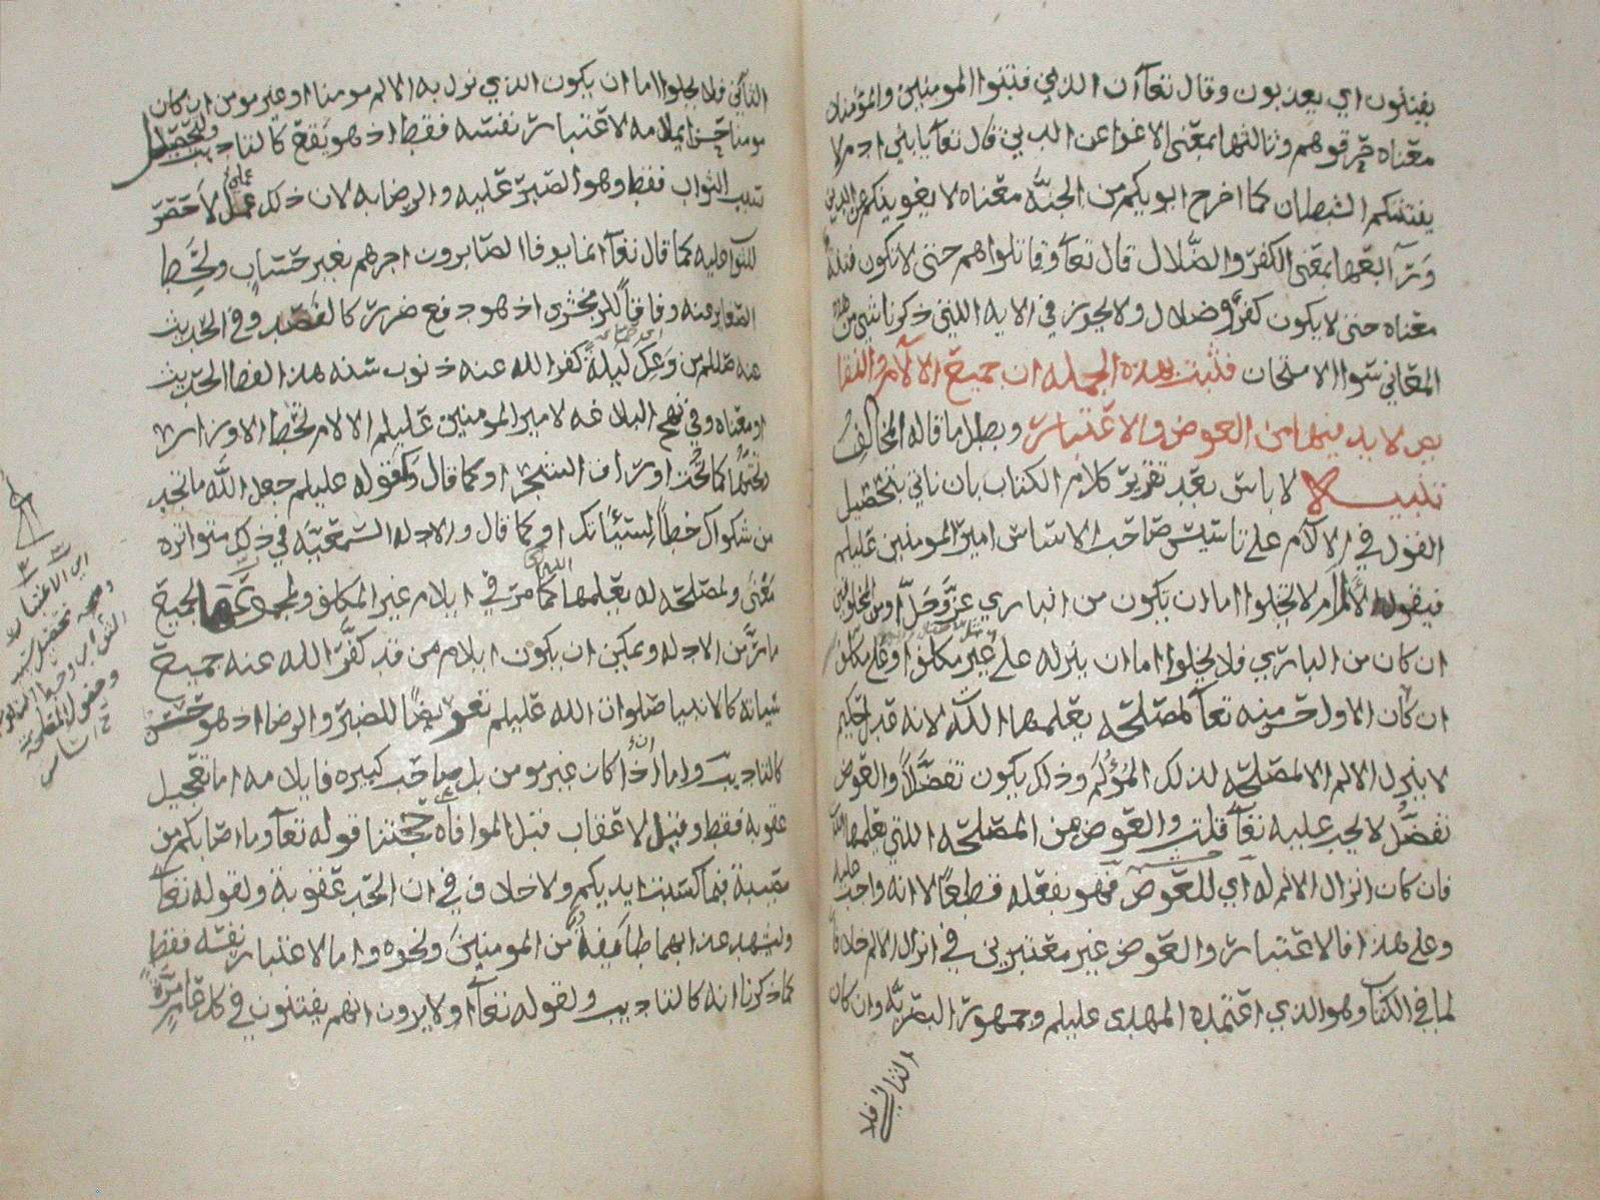 يفتنون اي يعذبون وقال تعا ان الذين فتنوا المومنين والمؤمنات
معناه حرقوهم وثالثها بمعنى الاغوا عن الدين قال تعا يا بني ادم لا
يفتننكم الشيطان كما اخرج ابويكم من الجنة معناه لا يغوينكم عن الدين
ورابعها بمعنى الكفر والضلال قال تعا وقاتلواهم حتى لا تكون فتنة
معناه حتى لا يكون كفر وضلال ولا يجوز في الايه اللتي ذكرنا شي من هذه
المعاني سوا الامتحان فثبت بهذه الجمله ان جميع الالام والنقا
يص لا بد فيها من العوض والاعتبار وبطل ما قاله المخالف
تنبيه لا باس بعد تقرير كلام الكتاب بان ناتي بتحصيل
القول في الالام على تاسيس صاحب الاساس امير المومنين عليلم
فيقول الالم لا يخلوا اما ان يكون من الباري عز وجل او من المخلوقين
ان كان من الباري فلا يخلوا اما ان ينزله على غير مكلف او على مكلف
ان كان الاول حسن منه تعا لمصلحه يعلمها الله لانه قد الحكيم
لا ينزل الالم الا لمصلحه لذلك المؤلم وذلك يكون تفضلا والعوض
تفضل لا يجب عليه تعا قلت والعوض من المصلحه اللتي يعلمها الله
فان كان انزال الالم له اي للعوض فهو يفعله قطعا لا انه واجب عليه
وعلى هذا فالاعتبار والعوض غير معتبرين في انزال الالم خلافا
لما في الكتا وهو الذي اعتمده المهدي عليلم وجمهور البصريه وان كان
الثاني فلا
الثاني فلا يخلوا اما ان يكون الذي نزل به الالم مومنا او غير مومن ان كان
مومنا حسن ايلامه لاعتبار نفسه فقط اذ هو نفع كالتاديب ولتحصيل
سبب الثواب فقط وهو الصبر عليه والرضا به لان ذلك عمل لا حصر
للثواب عليه كما قال تعا انما يوفا الصابرون اجرهم بغير حساب ولحط
الصغاير عنه وفاقا للزمخشري اذ هو دفع ضرر كالفصد وفي الحديث
عنه صللم من وعك ليلة كفر الله عنه ذنوب سنه هذا لفظ الحديث
او معناه وفي نهج البلاغه لامير المومنين عليلم الالام تحط الاوزار
وتحتها كما تحت اوراق الشجر او كما قال وكقوله عليلم جعل الله ما تجد
من شكواك حطا لسيئاتك او كما قال والادله السمعيه في ذلك متواتره
معنى ولمصلحه له يعلمها الله كما مر في ايلام غير المكلف ولمجموعها لجميع
ما مر من الادله ويمكن ان يكون ايلام من قد كفر الله عنه جميع
سياته كالانبيا صلوات الله عليلم تعويضا للصبر والرضا اذ هو حسن
كالتاديب واما اذا كان غير مومن بل صاحب كبيره فايلامه اما تعجيل
عقوبه فقط وقيل لا عقاب قبل الموافاه حجتنا قوله تعا وما اصابكم من
مصيبة فبما كسبت ايديكم ولا خلاف في ان الحد عقوبة ولقوله تعا
وليشهد عذابهما طايفة من المومنين ونحوه واما لاعتبار نفسه فقط
كما ذكرنا انه كالتاديب ولقوله تعا اولا يرون انهم يفتنون في كل عام مرة
اي الاعتبار
وهو تحصيل سبب
الثواب وحط الذنوب
وحصول المصلحه
اساس